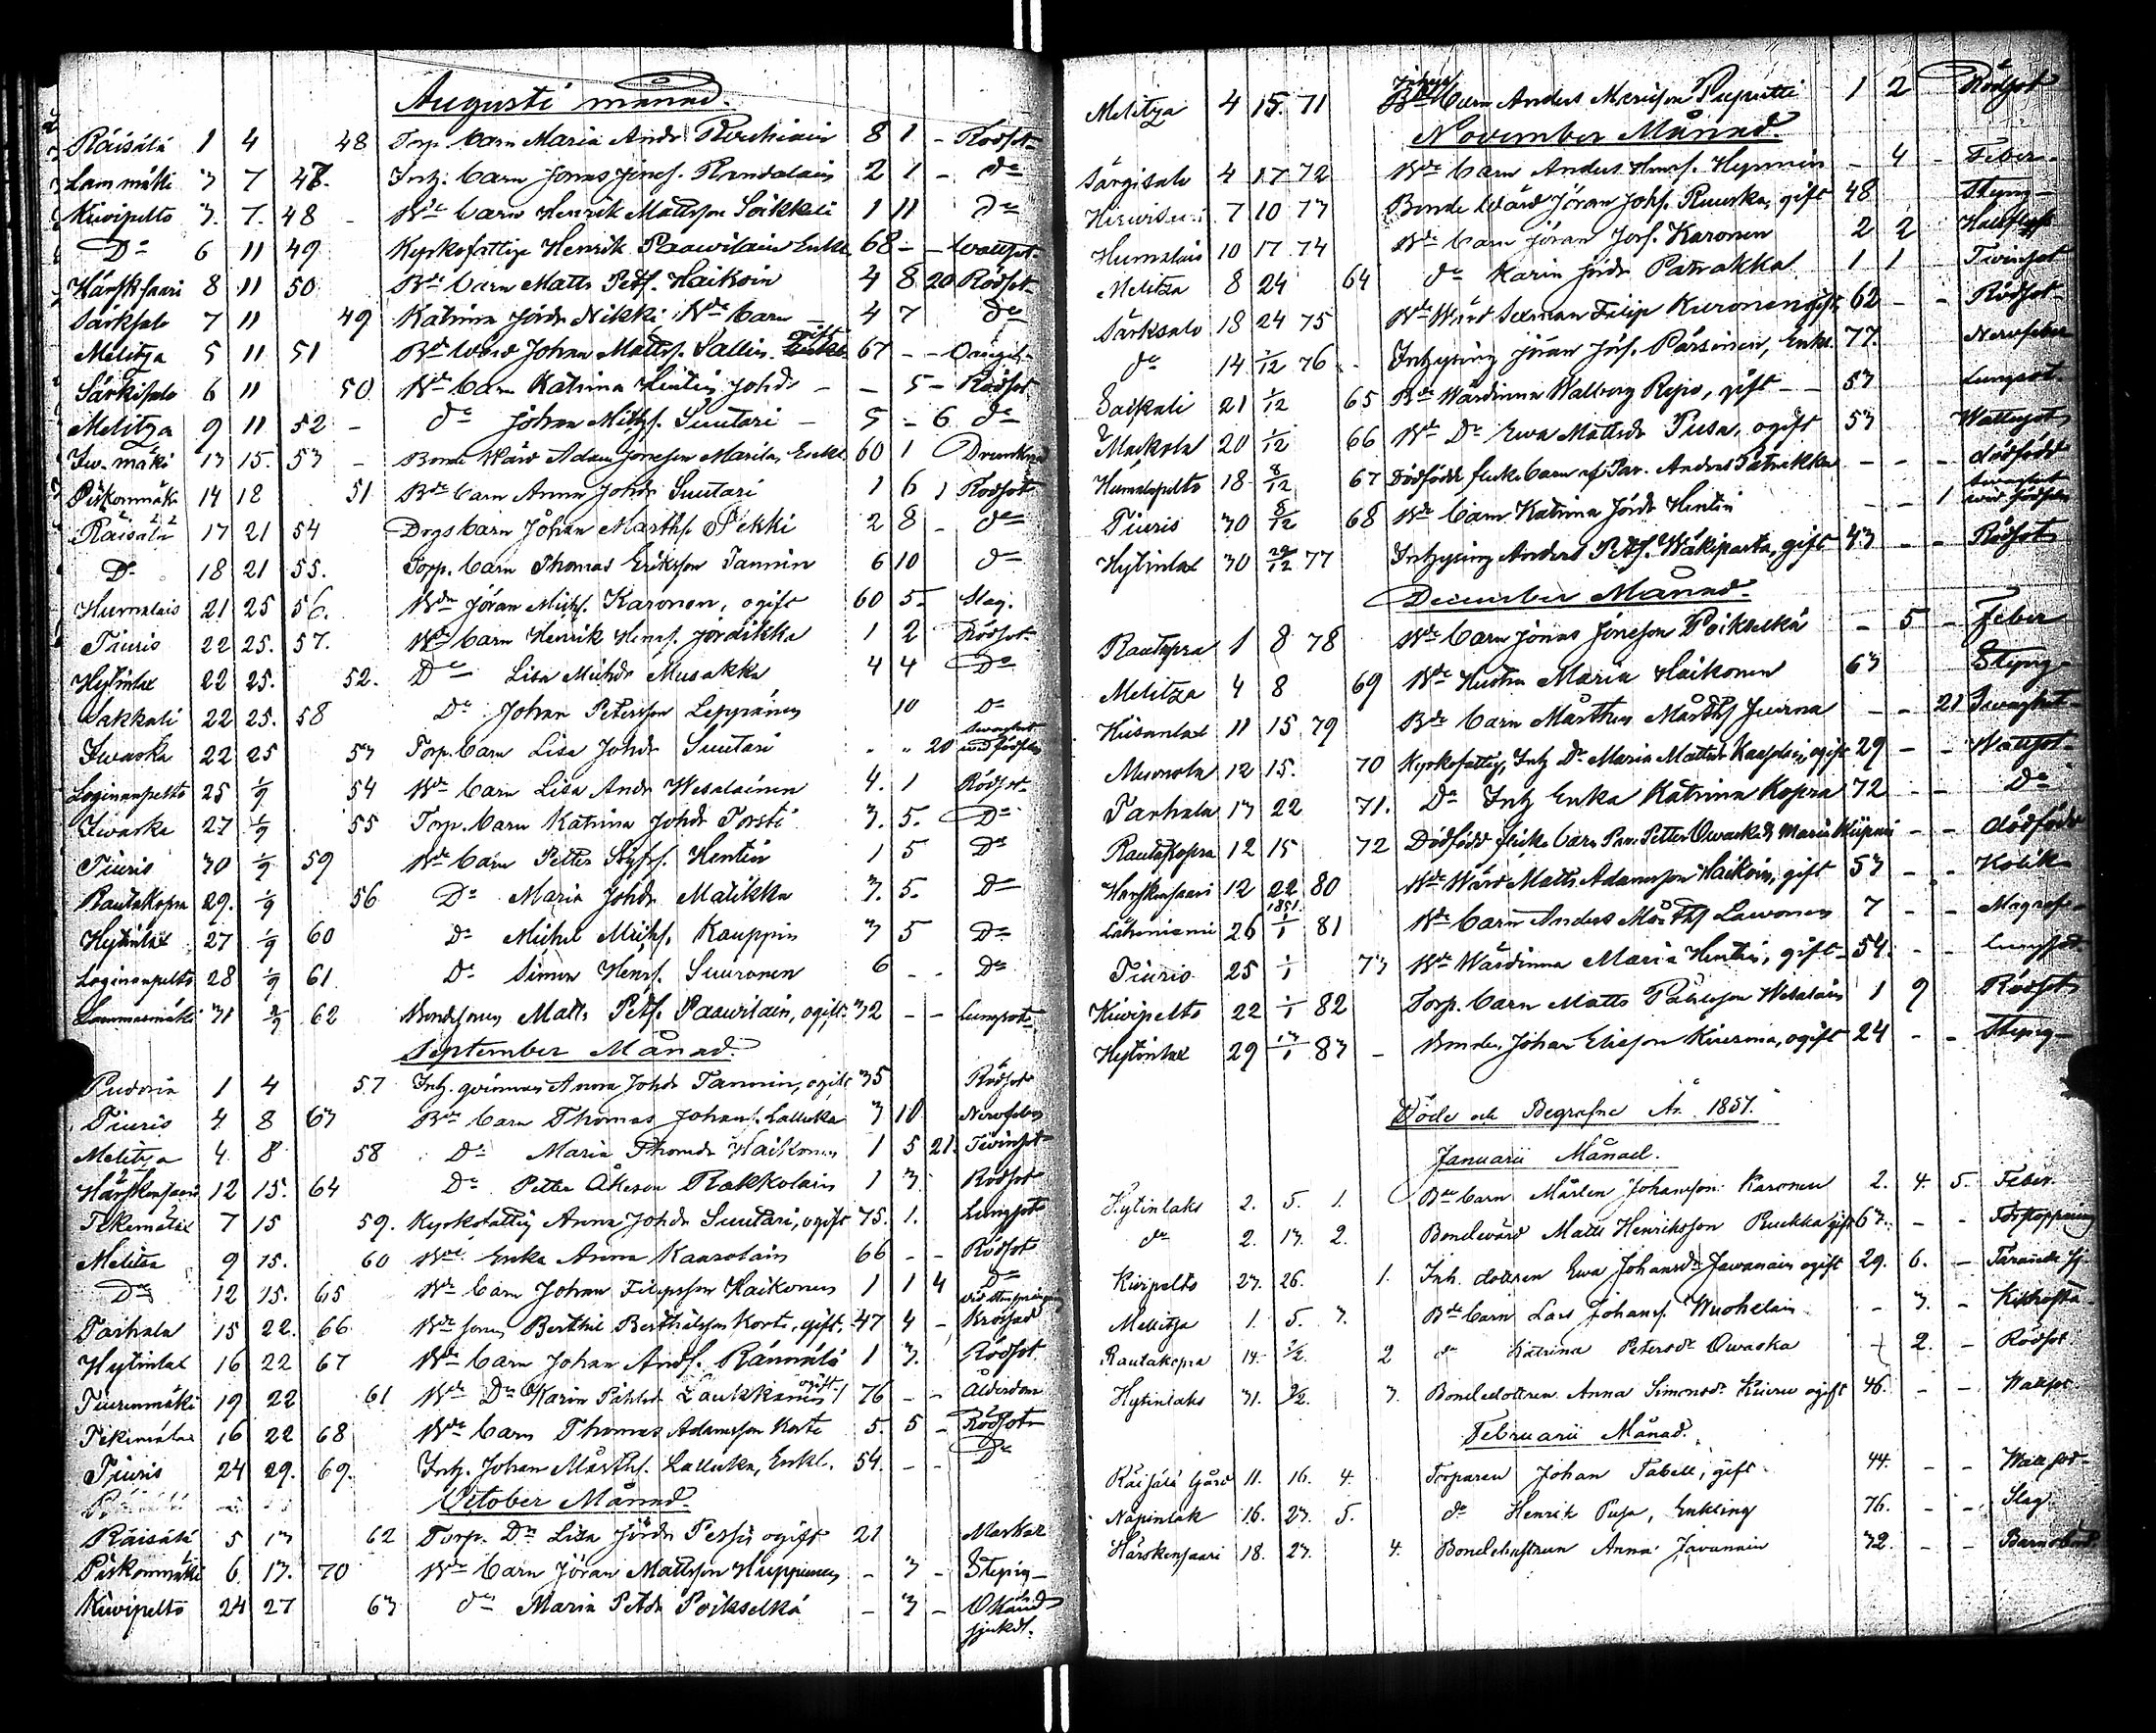 Augusti månad.
Räisälä 1 4 48 Torp. barn Maria Andr 8 1 - Rödsot
Lammäki 3 7 47. Inh. barn Jonas Jönsf. 2 1 - do
Kiwipelto 3. 7. 48 - Bde barn Henrik Mattsson Soikkeli 1 11 Do
Do 6 11 49 Kyrkofattige Henrik Paawilain Enkl 68 - - Wattsot
8 11 50 Bde barn Matts Petf. Haikoin 4 8 20 Rödsot
Särksalo 7 11 49 Katrina Jördr Nikki, Bde barn - 4 7 Do
Melitza 5 11 51 Bde Wärd Johan Mattsf. Sallin. Gift 67 - -
Särkisalo 6 11 50 Bde barn Katrina Hintin Johdr - - 5 - Rödsot
Melitza 9 11 52 - do Johan Mikf. Suutari - 5 - 6 do
Iw. mäki 13 15. 53 - Bonde Wärd Adam Jönsson Marila, Enkl. 60 1 Drunknad
Piskonmäki 14 18 51 Bde barn Anna Johdr Suutari 1 6 1 Rödsot
Räisälä 17 21 54 Drgs barn Johan Marthf. Pekki 2 8 - do
Do 18 21 55. Torp. barn Thomas Eriksson Tannin 6 10 do
Humalais 21 25 56. Bdn Jöran Michf. Karonen, ogift 60 5. Slag.
Tiuris 22 25. 57. Bde barn Henrik Henrf. Jördikka 1 2 Rödsot
Hytinlax 22 25. 52. Do Lisa Michdr Musakka 4 4 Do
Sakkali 22 25. 58 Do Johan Petersson Leppänen 10 Do
Iwaska 22 25 53 Torp. barn Lisa Johdr Suutari - " 20 swaghet wid födseln
Loginanpelto 25 1/9 54 Bde barn Lisa Andr Wesalainen 4. 1 Rödsot
Iwaska 27 1/9 55 Torp. barn Katrina Johdr Torsti 3. 5. Do
Tiuris 30 1/9 59 Bde barn Petter Hentin 1 5 Do
Rautakopra 29. 1/9 56 Do Maria Johdr Matikka 3. 5. Do
Hytinlax 27 1/9 60 Do Michel Michf. Kauppin 3 5 Do
Loginanpelto 28 1/9 61 Do Simon Henrf. Suuronen 6 - - Do
Lammasmäki 31 8/9 62 Bondeson Matts Petf. Paawilain, ogift 32 - - Lungsot
September Månad.
1 4 57 Inh. qvinnan Anna Johdr Tannin, ogift 35 Rödsot
Tiuris 4 8 63 Bde barn Thomas Johansf. Lallukka 3 10 Nervfeber
Melitza 4 8 58 Do Maria Thomdr Haikonen 1 5 21. Twinsot
Härskensaari 12 15. 64 Do Petter Åkeson Rakkolain 1 3. Rödsot
7 15 59. Kyrkofattig Anna Johdr Suutari, ogift 75. 1. Lungsot
Melitza 9 15. 60 Bde Enka Anna Kaarolain 66 - - Rödsot
Do 12 15. 65 Bde barn Johan Filipsson Haikonen 1 1 4 Do
Tarhala 15 22. 66. Bde son Berthil Berthilsson Korte, gift, 47 4 - Krossad
Hytinlax 16 22 67 Bde barn Johan Andf. Rämnälä 1 3. Rödsot
Tiurinmäki 19 22 61 Bde Dr Karin Påhlsdr Laukkanen ogift 76 - - Ålderdom
16 22 68 Bde barn Thomas Adamsson Korte 5. 5 - Rödsot
Tiuris 24 29. 69. Inh. Johan Mårthf. Lallukka, Enkl. 54. - - Do
October Månad.
Räisälä 5 13 62 Torp. Dr Lisa Jördr Pessi ogift 21 Maskar
Piskonmäki 6. 13. 70 Bde barn Jöran Mattsson Huppunen - 3 - Styng
Kiwipelto 24 27 63 do Maria Petdr Poikselkä - 3 - Okänd sjukd.
Melitza 4 15. 71 barn Anders Puputti 1 2 Rödsot
November Månad.
Särgisalo 4 17 72 Bde barn Anders Henrf. Hynnin - 4 - Feber
Hiswisaari 7 10 73 Bonde Wärd Jöran Johf. Ruuska, gift 48 Styng
Humalais 10 17 74 Bde barn Jöran Jorf. Karonen 2 2
Melitza 8 24 64 do Karin Jördr Patrakka 1 1 - Twinsot
Särksalo 18 24 75 Bde Wärd Sexman Filip Kuronen gift 62 - - Rödsot
do 14 1/12 76 - Inhysing Jöran Jörf. Pärsinen, Enkl. 77. Nervfeber
Saikali 21 1/12 65 Bde Wärdinna Walborg Repo, gift - - 53 Lungsot
Makola 20 1/12 66 Bde Dr Ewa Mattsdr Pusa, ogift 53 Wattusot
Humalapelto 18 8/12 67 Dödfödd flicke barn af Par. Anders Patrakka - - - dödfödd
Tiuris 30 8/12 68 Bde barn Katrina Jördr Hintin - - 1 swaghet wid födseln
Hytinlax 30 29/12 77 Inhysing Anders Petf. Wäkiparta, gift 43 - - Rödsot
December Månad.
Rautkopra 1 8 78 Bde barn Jonas Jönsson Poikselkä - 5 - Feber
Melitza 4 8 69 Bde Hustru Maria Haikonen 63 Styng
Hiisanlax 11 15 79 Bde barn Mårthen Mårthf. Juvna - - 21 Swaghet
12 15. 70 Kyrkofattig, Inh. Dr Maria Mattsdr ogift 29 - - Wattsot
Tarhala 13 22 71. Do Inh Enka Katrina Kopra 72 - - Do
Rautakopra 12 15 72 Dödfödd flicke barn Par. Petter Owaska & Maria - - dödfödd
Härskensaari 12 22 80 Bde Wärd Matts Adamsson Haikoin, gift 53 - - Kolik
Lähiniemi 26 1851 1/1 81 Bde barn Anders Mårthf Lawonen 7 - - Magref
Tiuris 25 1/1 73 Bde Wärdinna Maria Hentin, gift 54. - - Lungsot
Kiwipelto 22 1/1 82 Torp. barn Matts Påhlsson Wesalain 1 9 Rödsot
Hytinlax 29 13/1 83 - Bonden Johan Eliasson Kiiesma, ogift 24 - - Styng
Döde och Begrafne År 1851.
Januarii Månad.
Hytinlaks 2. 5. 1. Bde barn Mårten Johansson Karonen 2. 4. 5. Feber.
do 2. 13. 2. Bondewärd Matts Henriksson Ruokka gift 63. - - Förstoppning
Kiwipelto 23. 26. 1. Inh. dottren Ewa Johansdr Jawanain ogift 29. 6. - Tärande sj.
Mellitza 1. 5. 3. Bde barn Lars Johansf. Wuohelain - 3. - Kikhosta
Rautakopra 14. 2/2. 2 do Katrina Petersdr Owaska - 2. - Rödsot
Hytinlaks 31. 2/2. 3. Bondedottren Anna Simonsdr Kiuru ogift 46. - - Wattsot
Februarii Månad.
Räisälä Gård 11. 16. 4. Torparen Johan Tabell, gift 44. - - Wattsot
Näpinlak 16. 23. 5. do Henrik Pusa, Enkling 76. - - Slag.
Härskensaari 18. 23. 4. Bondehustrun Anna Javanain 32. - - Barnsbörd